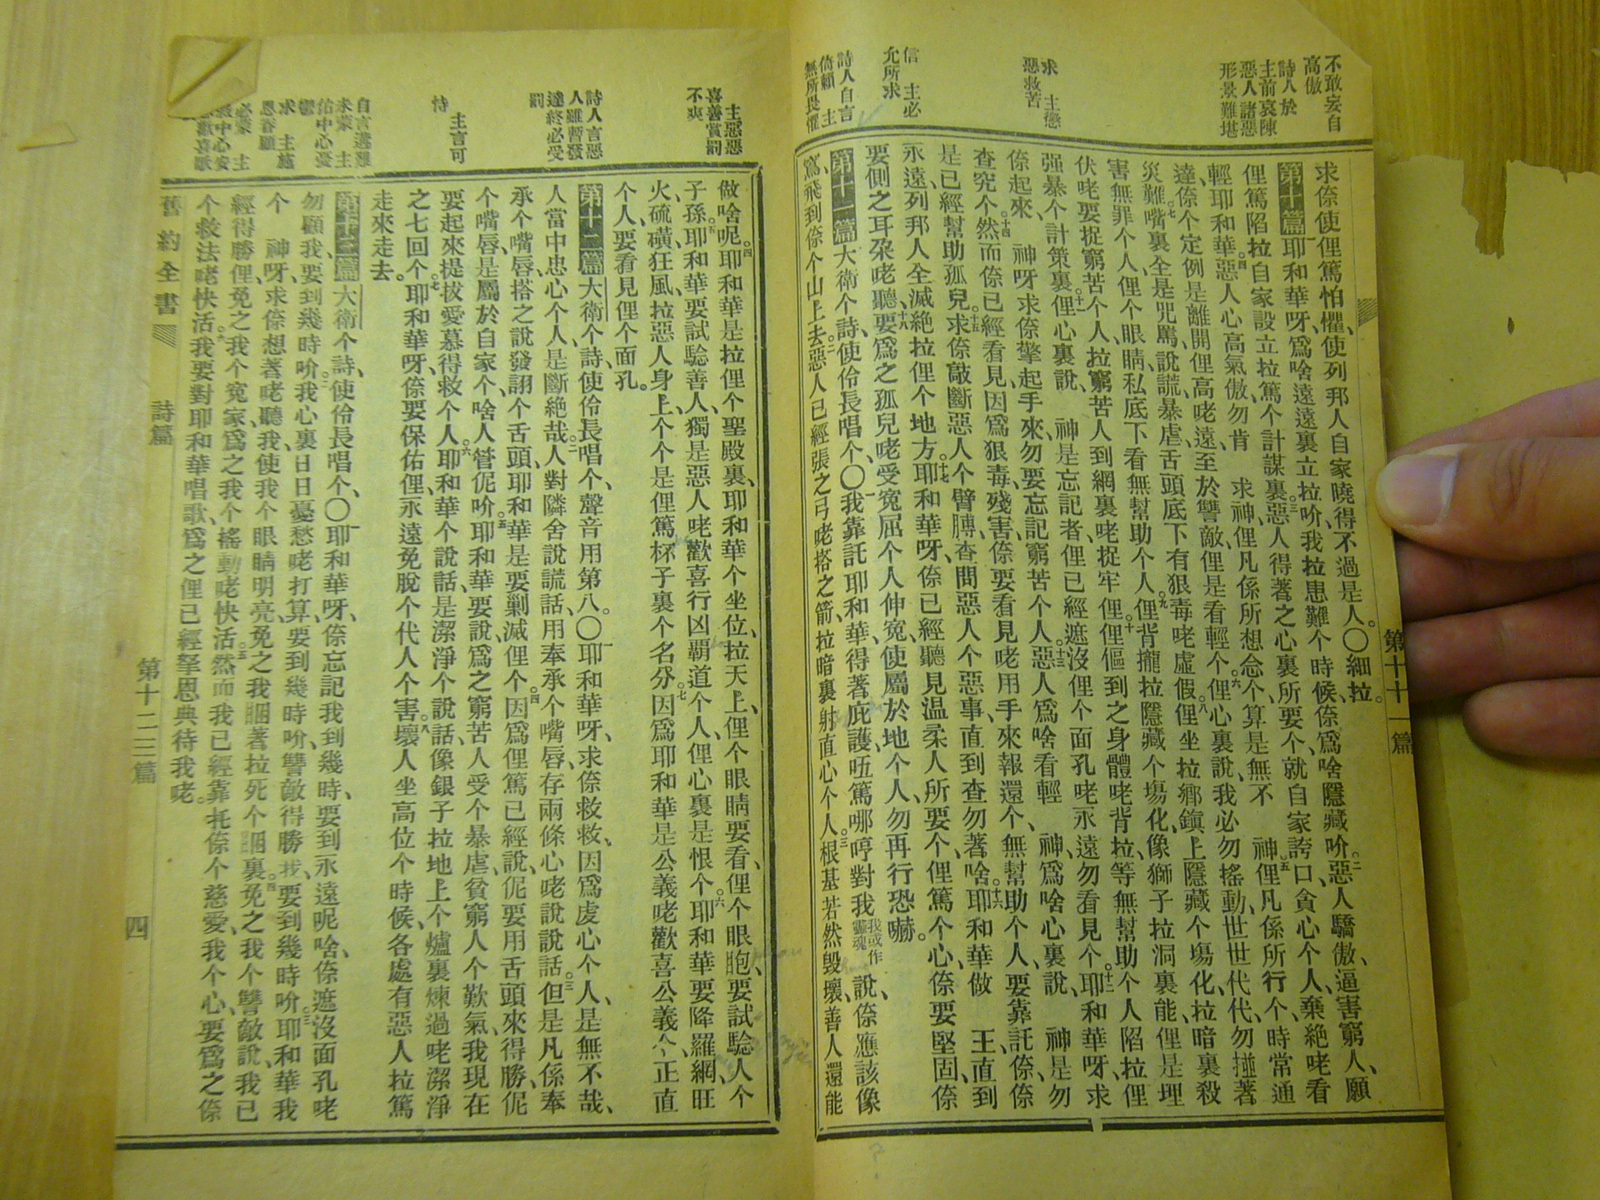 不敢妄自
高傲
詩人於
主前哀陳
惡人諸惡
形景難堪
求 主懲
惡救苦
信 主必
允所求
詩人自言
倚賴 主
無所畏懼
第十十一篇
求倷使俚篤怕懼、使列邦人自家曉得不過是人。〇細拉。
第十篇 耶和華呀、爲啥遠遠裏立拉吤、我拉患難个時候、倷爲啥隱藏吤。二惡人驕傲、逼害窮人、願
俚篤陷拉自家設立拉篤个計謀裏。三惡人得著之心裏所要个、就自家誇口、貪心个人、棄絕咾看
輕耶和華。四惡人心高氣傲、勿肯 求神、俚凡係所想念个、算是無不 神。五俚凡係所行个、時常通
達、倷个定例、是離開俚高咾遠、至於讐敵、俚是看輕个。六俚心裏說、我必勿搖動、世世代代、勿搕著
災難。七嘴裏全是咒罵、說謊、暴虐、舌頭底下有狠毒咾虛假。八俚坐拉鄉鎭上隱藏个塲化、拉暗裏殺
害無罪个人、俚个眼睛、私底下看無幫助个人。九俚背攏拉隱藏个塲化、像獅子拉洞裏能、俚是埋
伏咾要捉窮苦个人、拉窮苦人到網裏咾捉牢 俚。十俚傴到之身體咾背拉、等無幫助个人陷拉俚
强暴个計策裏。十一俚心裏說、 神是忘記者、俚已經遮沒俚个面孔咾永遠勿看見个。十二耶和華呀、求
倷起來、 神呀、求倷擎起手來、勿要忘記窮苦个人。十三惡人爲啥看輕 神、爲啥心裏說、 神是勿
查究个。十四然而倷已經看見、因爲狠毒、殘害、倷要看見咾用手來報還个、無幫助个人、要靠託倷、倷
是已經幫助孤兒。十五求倷敲斷惡人个臂膊、查問惡人个惡事、直到查勿著啥。十六耶和華做 王、直到
永遠、列邦人全滅絕拉俚个地方。十七耶和華呀、倷已經聽見温柔人所要个、俚篤个心、倷要堅固、倷
要側之耳朶咾聽。十八要爲之孤兒咾受寃屈个人伸寃、使屬於地个人、勿再行恐嚇。
第十一篇 大衛个詩、使伶長唱个、〇一我靠託耶和華、得著庇護、㕶篤哪哼對我我或作靈魂說、倷應該像
寫、飛到倷个山上去。二惡人已經張之弓咾搭之箭、拉暗裏射直心个人。三根基若然毁壞、善人還能
主惡惡
喜善賞罰
不爽
詩人言惡
人雖暫發
達終必受
罰
主言可
恃
自言遭難
未蒙 主
佑中心憂
鬱
求 主施
恩眷顧
必蒙 主
做啥呢。四耶和華是拉俚个聖殿裏、耶和華个坐位、拉天上、俚个眼睛要看、俚个眼胞、要試騐人个
子孫。五耶和華要試騐善人、獨是惡人咾歡喜行凶覇道个人、俚心裏是恨个。六耶和華要降羅網、旺
火、硫磺、狂風、拉惡人身上、个个是俚篤杯子裏个名分。七因爲耶和華是公義咾歡喜公義个、正直
个人、要看見俚个面孔。
第十二篇 大衛个詩、使伶長唱个、聲音用第八。〇一耶和華呀、求倷救救、因爲虔心个人、是無不哉、
人當中忠心个人、是斷絕哉。二人對隣舍說謊話、用奉承个嘴唇、存兩條心咾說說話。三但是凡係奉
承个嘴唇搭之說發詡个舌頭、耶和華是要剿滅俚个。四因爲俚篤已經說、伲要用舌頭來得勝、伲
个嘴唇、是屬於自家个、啥人管伲吤。五耶和華要說、爲之窮苦人受个暴虐、貧窮人个歎氣、我現在
要起來、提拔愛慕得救个人。六耶和華个說話、是潔淨个說話、像銀子拉地上个爐裏煉過咾潔淨
之七回个。七耶和華呀、倷要保佑俚、永遠免脫个代人个害。八壞人坐高位个時候、各處有惡人拉篤
走來走去。
第十三篇 大衛个詩、使伶長唱个、〇一耶和華呀、倷忘記我到幾時、要到永遠呢啥、倷遮沒面孔咾
勿顧我、要到幾時吤。二我心裏日日憂愁咾打算、要到幾時吤、讐敵得勝我、要到幾時吤。三耶和華我
个 神呀、求倷想著咾聽我、使我个眼睛明亮、免之我睏著拉死个睏裏。四免之我个讐敵說、我已
經得勝俚、免之我个寃家、爲之我个搖動咾快活。五然而我已經靠托倷个慈愛、我个心、要爲之倷
个救法咾快活。六我要對耶和華唱歌、爲之俚已經拏恩典待我咾。
舊約全書
詩篇
第十二三篇
四